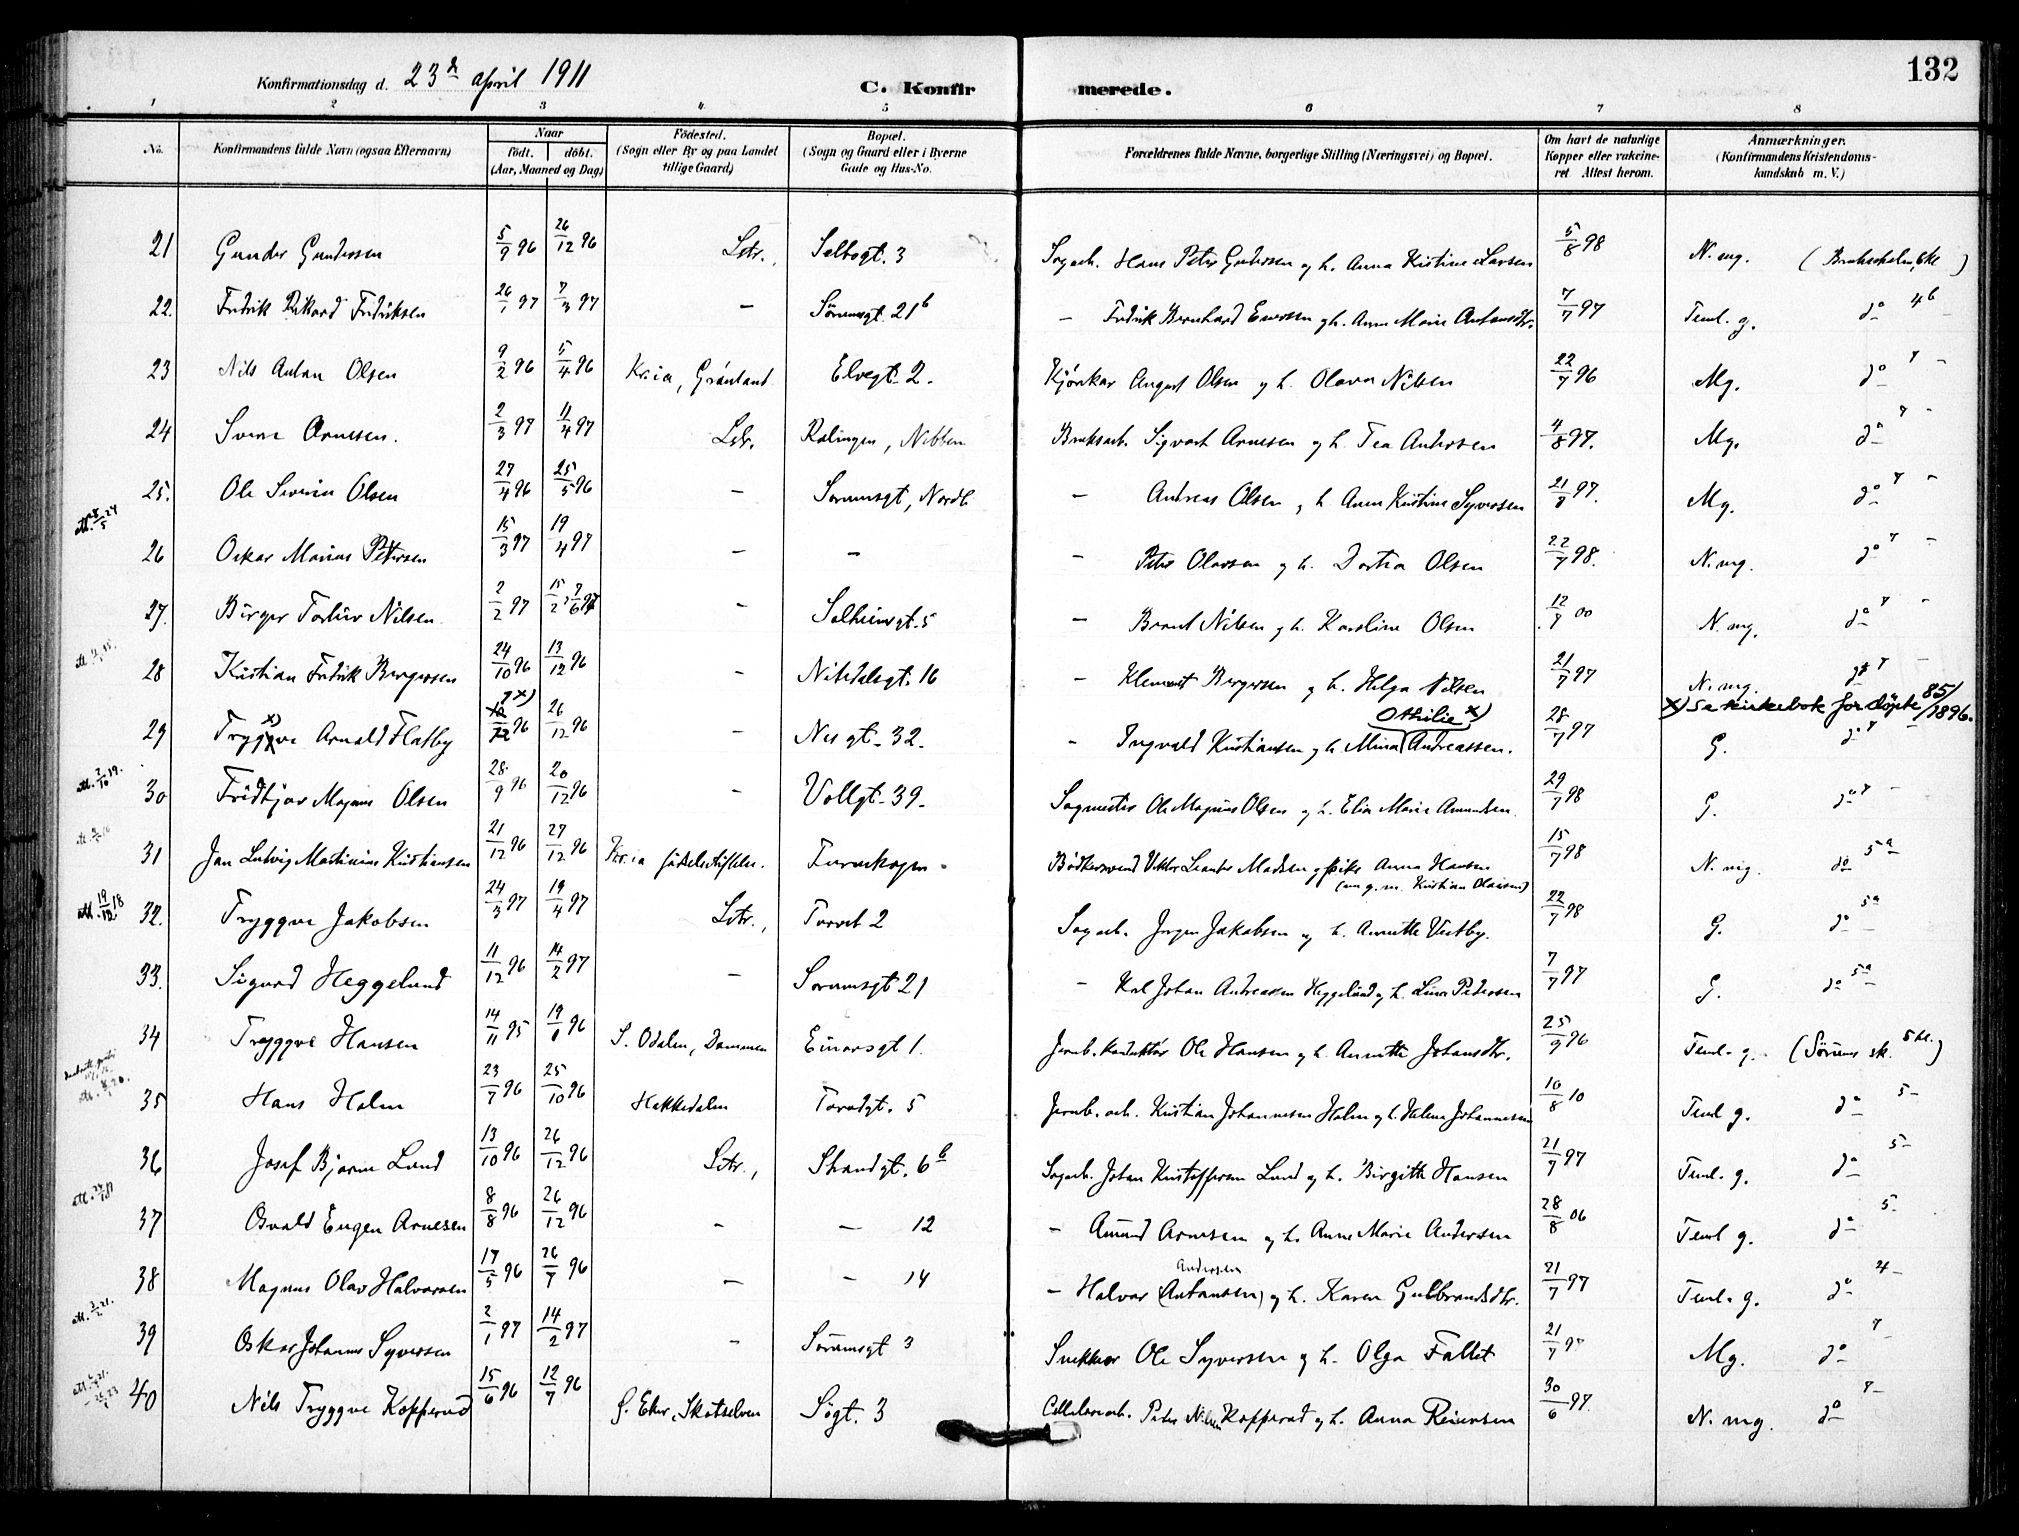 132
Konfirmationsdag d. 23d april 1911 C. Konfirmerede.
1 2 3 4 5 6 7 8
No. Konfirmandens fulde Navn (ogsaa Efternavn) Naar født. døbt. (Aar, Maaned og Dag) Fødested. (Sogn eller By og paa Landet tillige Gaard) Bopæl. (Sogn og Gaard eller i Byerne Gade og Hus-No. Forældrenes fulde Navne, borgerlige Stilling (Næringsvei) og Bopæl. Om havt de naturlige Kopper eller vakcineret Attest herom. Anmærkninger. (Konfirmandens Kristendomskundskab m. V.)
21 Gunder Gundersen 5/9 96 26/12 96 Lstr., 3 Sagarb. Hans Peter og h. Anna Kristine Larsen 5/8 98 N. mg.
22. Fredrik Rikard Fredriksen 26/1 97 7/3 97 — Sørumsgt. 21b — Fredrik Bernhard Evensen og h. Anne Marie Antonsdtr. 7/7 97 Teml. g. do 4b -
23 Nils Anton Olsen 9/2 96 5/4 96 Kr.ia, Grønland Elvegt. 2. August Olsen og h. Olava Nilsen 22/7 96 Mg. do 7 -
24 Sverre Arnesen. 2/3 97 11/4 97 Lstr. Rælingen, Nibben Bruksarb. Sigvart Arnesen og h. Tea Andersen 4/8 97. Mg. do 7 -
25. Ole Severin Olsen 27/4 96 25/5 96 — Sørumsgt, Nordb — Andreas Olsen og h. Anne Kristine Syversen 21/8 97. Mg. do 7 -
26 Oskar Marius Petersen 15/3 97 19/4 97 — — — Peter Olavsen og h. Dortea Olsen 22/7 98. N. mg. do 7 -
27. Birger Torleiv Nilsen 2/2 97 15/2, 7/6 97 — Solheimsgt. 5 — Bernt Nilsen og h. Karoline Olsen 12/7 00 N. mg. do 7 -
28 Kristian Fredrik Bergersen 24/10 96 13/12 96 — Nitedalsgt. 16 — Klement Bergersen og h. Helga Nilsen 21/7 97 N. mg. do 7 -
x) Se kirkebok for døpte 85/1896.
29 Tryggve Arnold Flatby 26/12 96 — Nesgt. 32. — Ingvald Kristiansen og h. Mina Othilie x) Andreassen. 28/7 97 G. do 7 -
30 Fridtjov Magnus Olsen 28/9 96 20/12 96 — Vollgt. 39. Sagmester Ole Magnus Olsen og h. Elia Marie Amundsen. 29/7 98 G. do 7 -
31 Jan Ludvig Martinius Kristiansen 21/12 96 27/12 96 Kr.ia fødselsstiftelse. Bødkersvend Viktor Leander Madsen og pike Anna Hansen (nu g. m. Kristian Olausen) 15/7 98 N. mg. do 5a
32. Tryggve Jakobsen 24/3 97 19/4 97 Lstr., Torvet 2 Sagarb. Jørgen Jakobsen og h. Annette Vestby. 22/7 98 G. do 5a
33. Sigurd Heggelund 11/12 96 14/2 97 — Sørumsgt 21 — Karl Johan Andreassen Heggelund og h. Lina Pedersen 7/7 97 G. do 5a
34 Tryggve Hansen 14/11 95 19/1 96 S. Odalen, Dammen Einarsgt 1. Jernb. konduktør Ole Hansen og h. Annette Johansdtr. 25/9 96 Teml. g. (Sørums sk. 5 kl.)
35 Hans Holm 23/7 96 25/10 96 Hakkedalen Torvdgt. 5 Jernb. arb. Kristian Johannesen Holm og h. Helene Johannesen 10/8 10 Teml g. do 5-
36 Josef Bjarne Lund 13/10 96 26/12 96 Lstr., Strandgt. 6b Sagarb. Johan Kristoffersen Lund og h. Birgitte Hansen 21/7 97 Teml. g. do 5-
37 Osvald Eugen Arnesen 8/8 96 26/12 96 — — 12 — Amund Arnesen og h. Anne Marie Andersen 28/8 06 Teml g. do 5-
38 Magnus Olav Halvorsen 17/5 96 26/7 96 — — 14 — Halvor (Antonsen) Andersen og h. Karen Gulbrandsdtr. 21/7 97 Teml. g. do 4-
39 Oskar Johannes Syversen 2/1 97 14/2 97 — Sørumsgt 3 Snekker Ole Syversen og h. Olga Fallet 21/7 97 Mg. do 7-
40 Nils Tryggve Kopperud 15/6 96 12/7 96 Ø. Eker, Skotselven Søgt. 3 Cellulosearb. Peter Nilsen Kopperud og h. Anna Reiersen 30/6 97. N. mg. do 7-